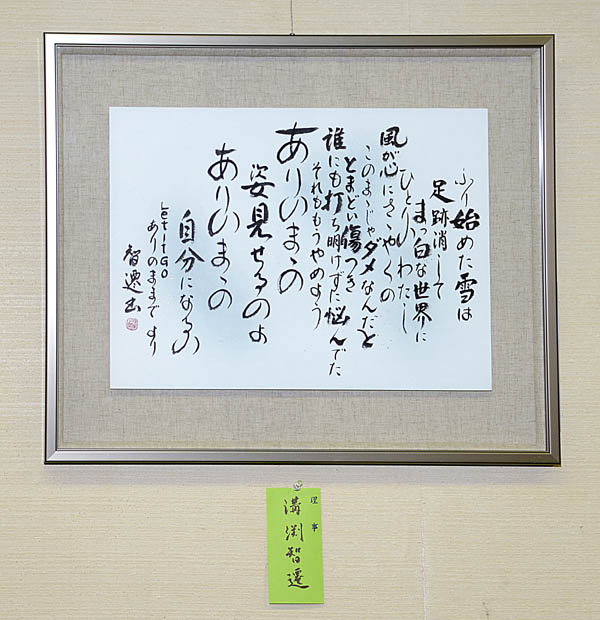 ふり始めた雪は
足跡消して
まっ白な世界に
ひとりのわたし
風が心にささやくの
このままじゃダメなんだと
とまどい傷つき
誰にも打ち明けずに悩んでた
それももうやめよう
ありのままの
姿見せるのよ
ありのままの
自分になるの
Let it Go
ありのままでより
智遷書
理事
溝渕智遷